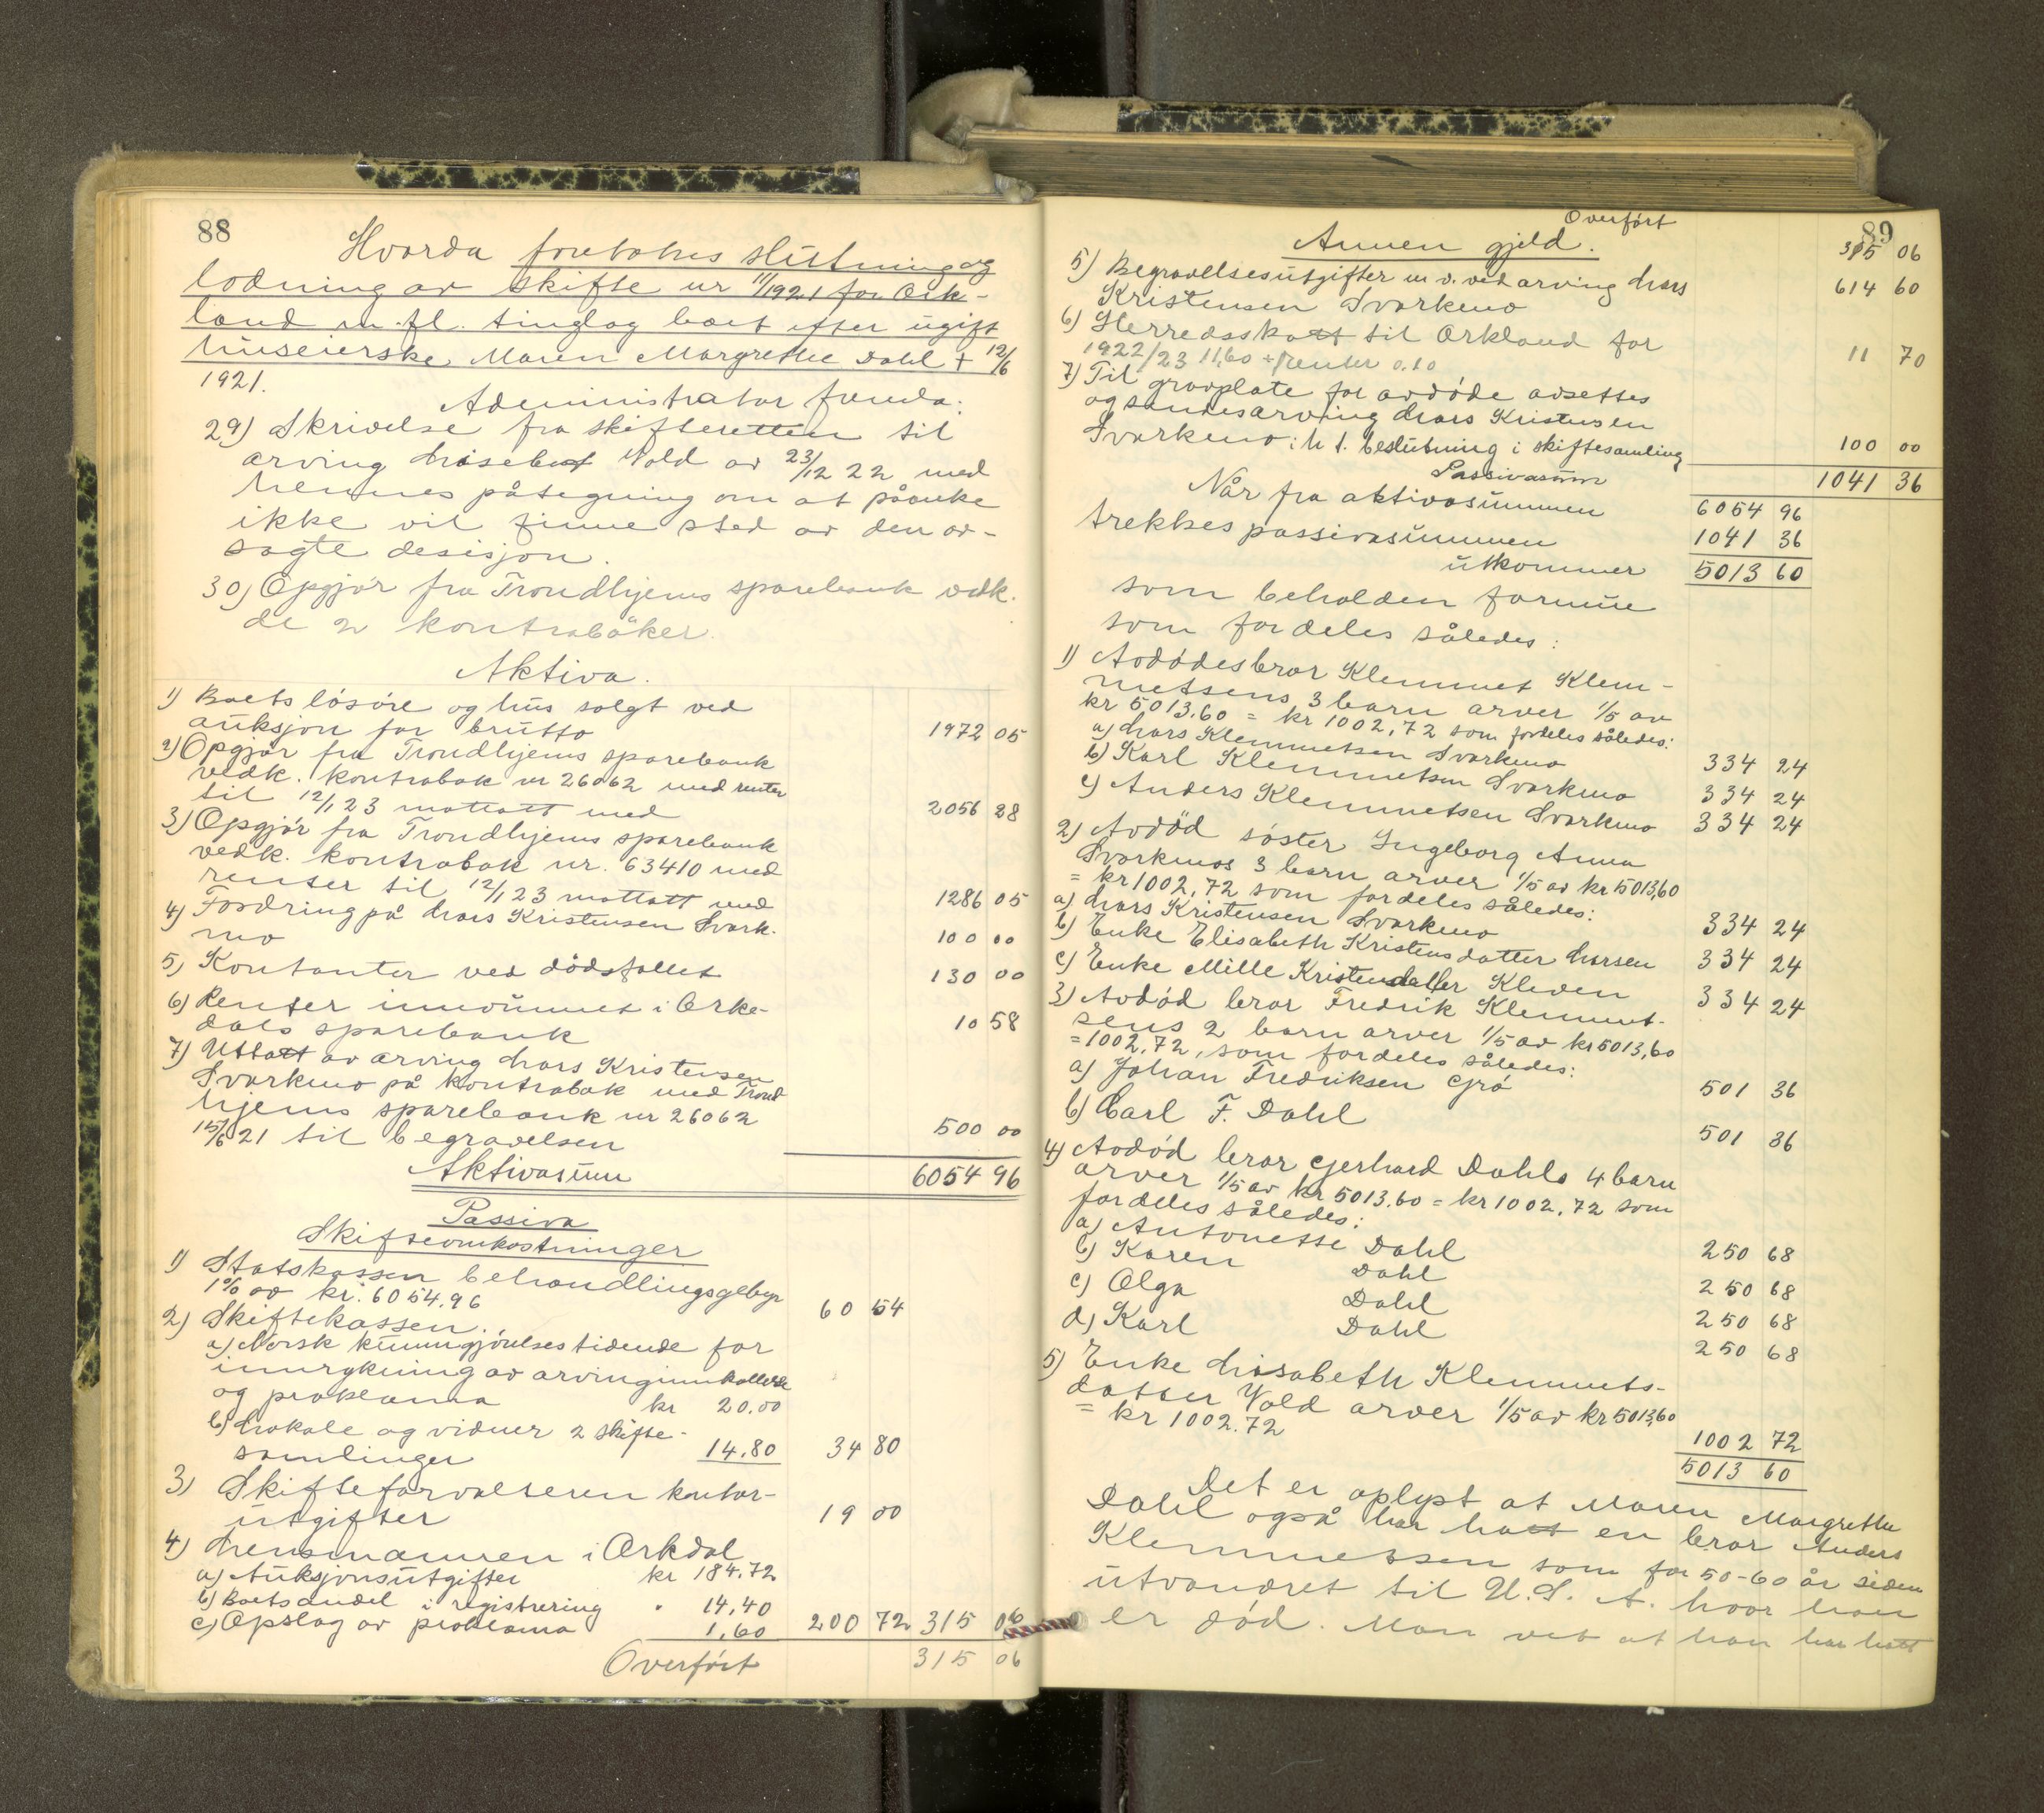 88
Hvorda foretokes slutning og
lodning av skifte nr 11/1921 for Ork-
land m. fl. tinglag boet efter ugift
huseierske Maren Margrethe Dahl + 12/6
1921.
Administrator fremla:
29) Skrivelse fra skifteretten til
arving Lisebet Vold av 23/12 22 med
hennes påtegning om at påanke
ikke vil finne sted av den av-
sagte desisjon.
30) Opgjør fra Trondhjems sparebank vedk.
de 2 kontrabøker.
Aktiva.
1) Boets løsøre og hus solgt ved
auksjon for brutto 1972 05
2) Opgjør fra Trondhjems sparebank
vedk. kontrabok nr 26062 med renter
til 12/1 23 mottatt med 2056 28
3) Opgjør fra Trondhjems sparebank
vedk. kontrabok nr. 63410 med
renter til 12/1 23 mottatt med 1286 05
4) Fordring på Lars Kristensen Svork-
mo 100 00
5) Kontanter ved dødsfallet 130 00
6) Renter innvunnet i Orke-
dals sparebank 10 58
7) Uttatt av arving Lars Kristensen
Svorkmo på kontrabok med Trond
hjems sparebank nr 26062
15/6 21 til begravelsen 500 00
Aktivasum 6054 96
Passiva
Skifteomkostninger
1) Statskassen behandlingsgebyr
1% av kr. 6054.96 60 54
2) Skiftekassen.
a) Norsk kunngjørelsestidende for
innrykning av arvinginnkallelse
og proklama kr 20.00
b) Lokale og vidner 2 skifte-
samlinger 14.80 34 80
3) Skifteforvalteren kontor-
utgifter 19 00
4) Lensmannen i Orkdal
a) Auksjonsutgifter kr 184.72
b) Boets andel i registrering " 14.40
c) Opslag av proklama 1.60 200 72 315 06
Overført 315 06
Overført 89
Annen gjeld. 315 06
5) Begravelsesutgifter m. v. ved arving Lars
Kristensen Svorkmo 614 60
6) Herredsskatt til Orkland for
1922/23 11,60 + renter 0.10 11 70
7) Til gravplate for avdøde avsettes
og sendes arving Lars Kristensen
Svorkmo i h. t. beslutning i skiftesamling 100 00
Passivasum 1041 36
Når fra aktivasummen 6054 96
trekkes passivasummen 1041 36
utkommer 5013 60
som beholden formue
som fordeles således:
1) Avdødes bror Klemmet Klem-
metsens 3 barn arver 1/5 av
kr 5013.60 = kr 1002,72 som fordeles således:
a) Lars Klemmetsen Svorkmo 334 24
b) Karl Klemmetsen Svorkmo 334 24
c) Anders Klemmetsen Svorkmo 334 24
2) Avdød søster Ingeborg Anna
Svorkmos 3 barn arver 1/5 av kr 5013,60
= kr 1002,72 som fordeles således:
a) Lars Kristensen Svorkmo 334 24
b) Enke Elisabeth Kristensdatter Larsen 334 24
c) Enke Mille Kristensdatter Kleven 334 24
3) Avdød bror Fredrik Klemmet-
sens 2 barn arver 1/5 av kr 5013,60
= 1002,72, som fordeles således:
a) Johan Fredriksen Gjrø 501 36
b) Carl F. Dahl 501 36
4) Avdød bror Gerhard Dahls 4 barn
arver 1/5 av kr 5013.60 = kr 1002.72 som
fordeles således:
a) Antonette Dahl 250 68
b) Karen Dahl 250 68
c) Olga Dahl 250 68
d) Karl Dahl 250 68
5) Enke Lisabeth Klemmets-
datter Vold arver 1/5 av kr 5013,60
= kr 1002.72 1002 72
5013 60
Det er oplyst at Maren Margrethe
Dahl også har hatt en bror Anders
Klemmetsen som for 50-60 år siden
utvandret til U. S. A. hvor han
er død. Man vet at han har hatt